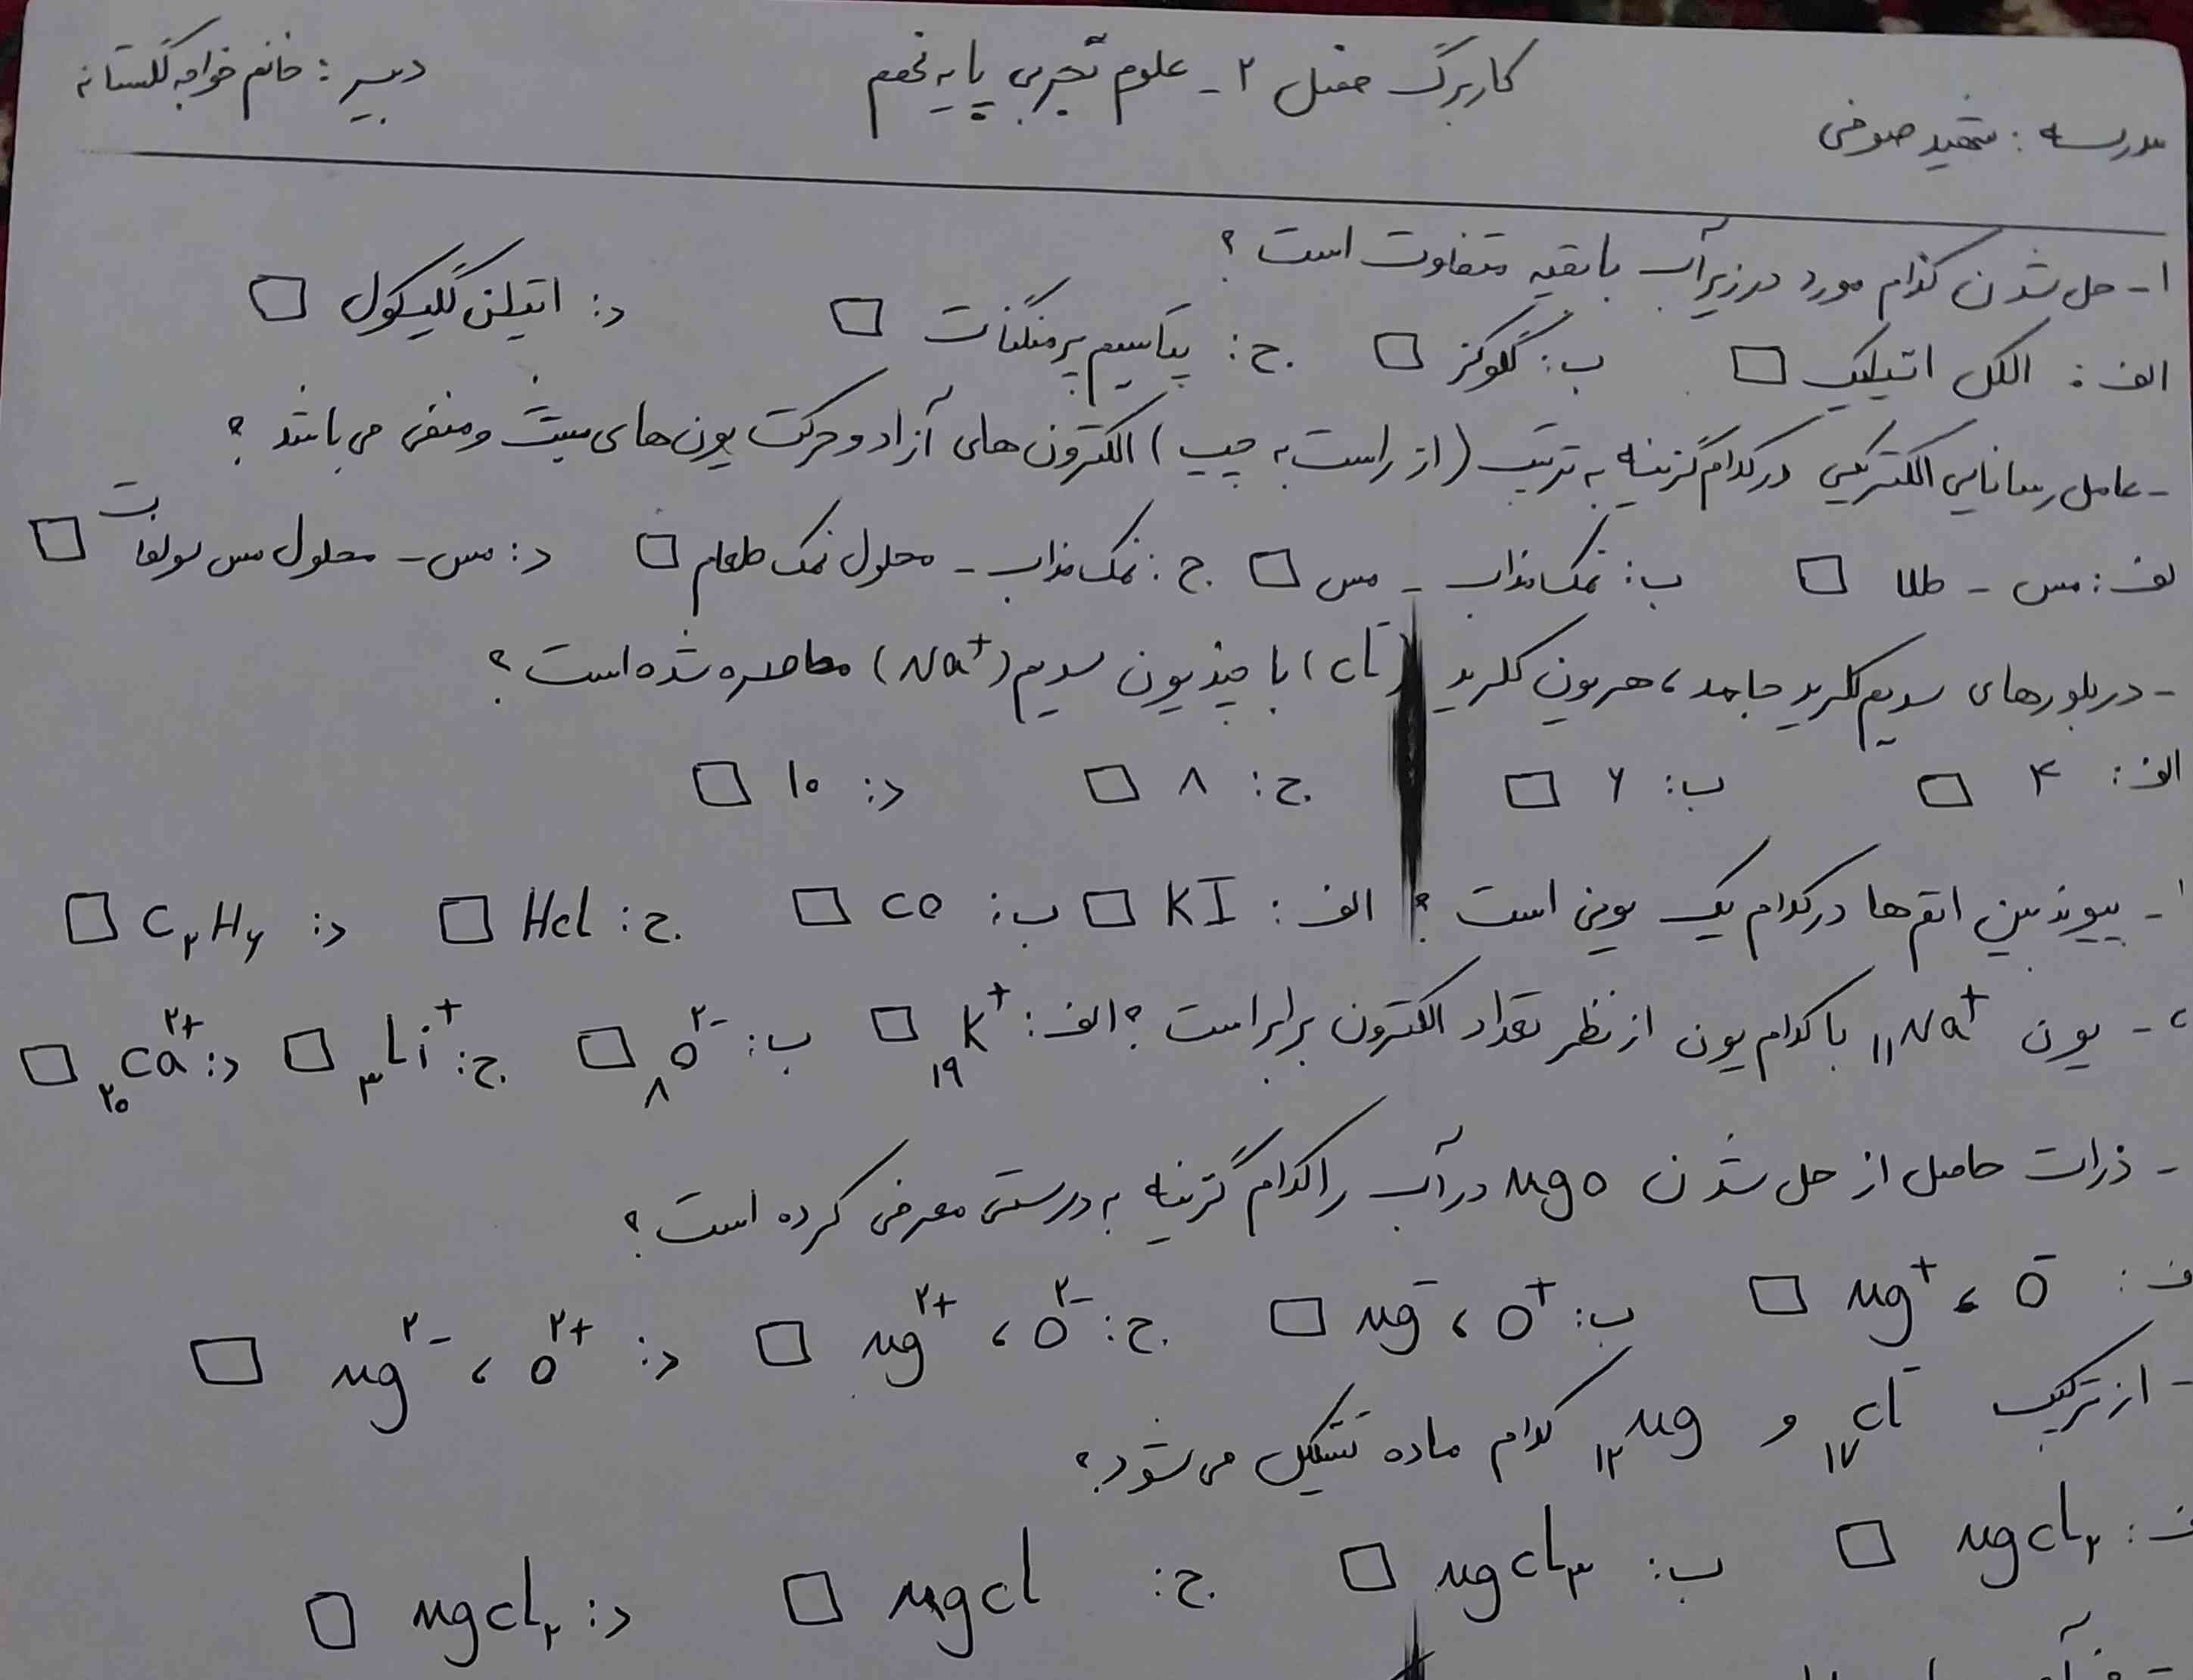 کاربرگ فصل ۲ - علوم تجربی پایه نهم
مدرسه : شهید صوفی
دبیر : خانم خواجه گلستانه
۱- حل شدن کدام مورد در زیر آب با بقیه متفاوت است ؟
الف : الکل اتیلیک □ ب : گلوکز □ ج : پتاسیم پرمنگنات □ د : اتیلن گلیکول □
- عامل رسانایی الکتریکی در کدام گزینه به ترتیب (از راست به چپ) الکترون های آزاد و حرکت یون های مثبت و منفی می باشد ؟
لف : مس - طلا □ ب : نمک مذاب - مس □ ج : نمک مذاب - محلول نمک طعام □ د : مس - محلول مس سولفات □
- در بلورهای سدیم کلرید جامد ، هر یون کلرید (Cl⁻) با چند یون سدیم (Na⁺) محاصره شده است ؟
الف : ۴ □ ب : ۶ □ ج : ۸ □ د : ۱۰ □
- پیوند بین اتم ها در کدام یک یونی است ؟ الف : KI □ ب : CO □ ج : HCl □ د : C₂H₆ □
- یون ₁₁Na⁺ با کدام یون از نظر تعداد الکترون برابر است ؟ الف : ₁₉K⁺ □ ب : ₈O²⁻ □ ج : ₃Li⁺ □ د : ₂₀Ca²⁺ □
- ذرات حاصل از حل شدن MgO در آب را کدام گزینه به درستی معرفی کرده است ؟
ف : Mg⁺ ، O⁻ □ ب : Mg⁻ ، O⁺ □ ج : Mg²⁺ ، O²⁻ □ د : Mg²⁻ ، O²⁺ □
- از ترکیب ₁₇Cl⁻ و ₁₂Mg کدام ماده تشکیل می شود ؟
ف : MgCl₂ □ ب : MgCl₃ □ ج : MgCl □ د : MgCl₂ □